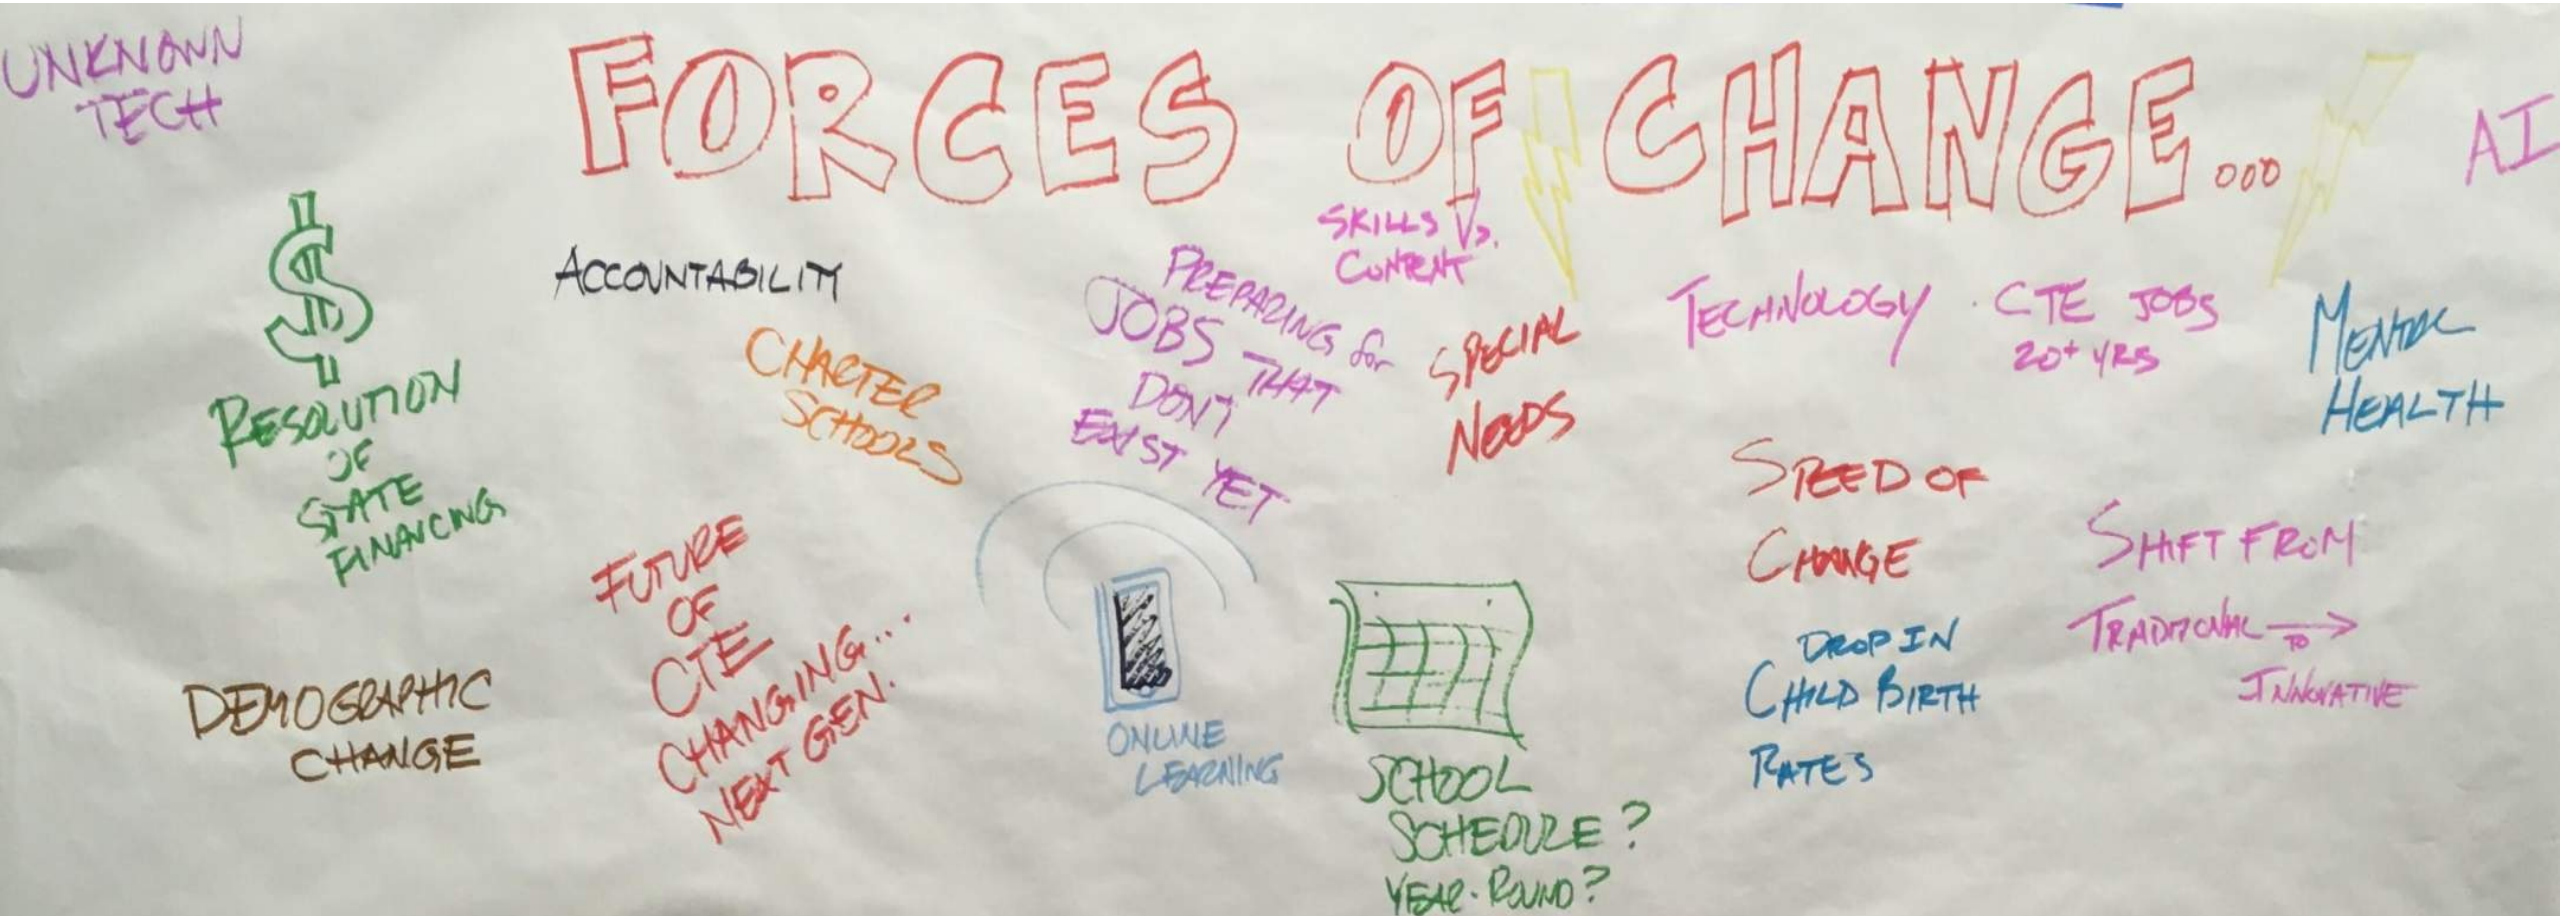 UNKNOWN
TECH
FORCES OF CHANGE...
AI
$
RESOLUTION
OF
STATE
FINANCING
ACCOUNTABILITY
CHARTER
SCHOOLS
SKILLS Vs.
CONTENT
PREPARING for
JOBS THAT
DON'T
EXIST YET
SPECIAL
NEEDS
TECHNOLOGY
CTE JOBS
20+ YRS
MENTAL
HEALTH
SPEED OF
CHANGE
SHIFT FROM
TRADITIONAL TO →
INNOVATIVE
DEMOGRAPHIC
CHANGE
FUTURE
OF
CTE
CHANGING...
NEXT GEN.
ONLINE
LEARNING
SCHOOL
SCHEDULE?
YEAR-ROUND?
DROP IN
CHILD BIRTH
RATES